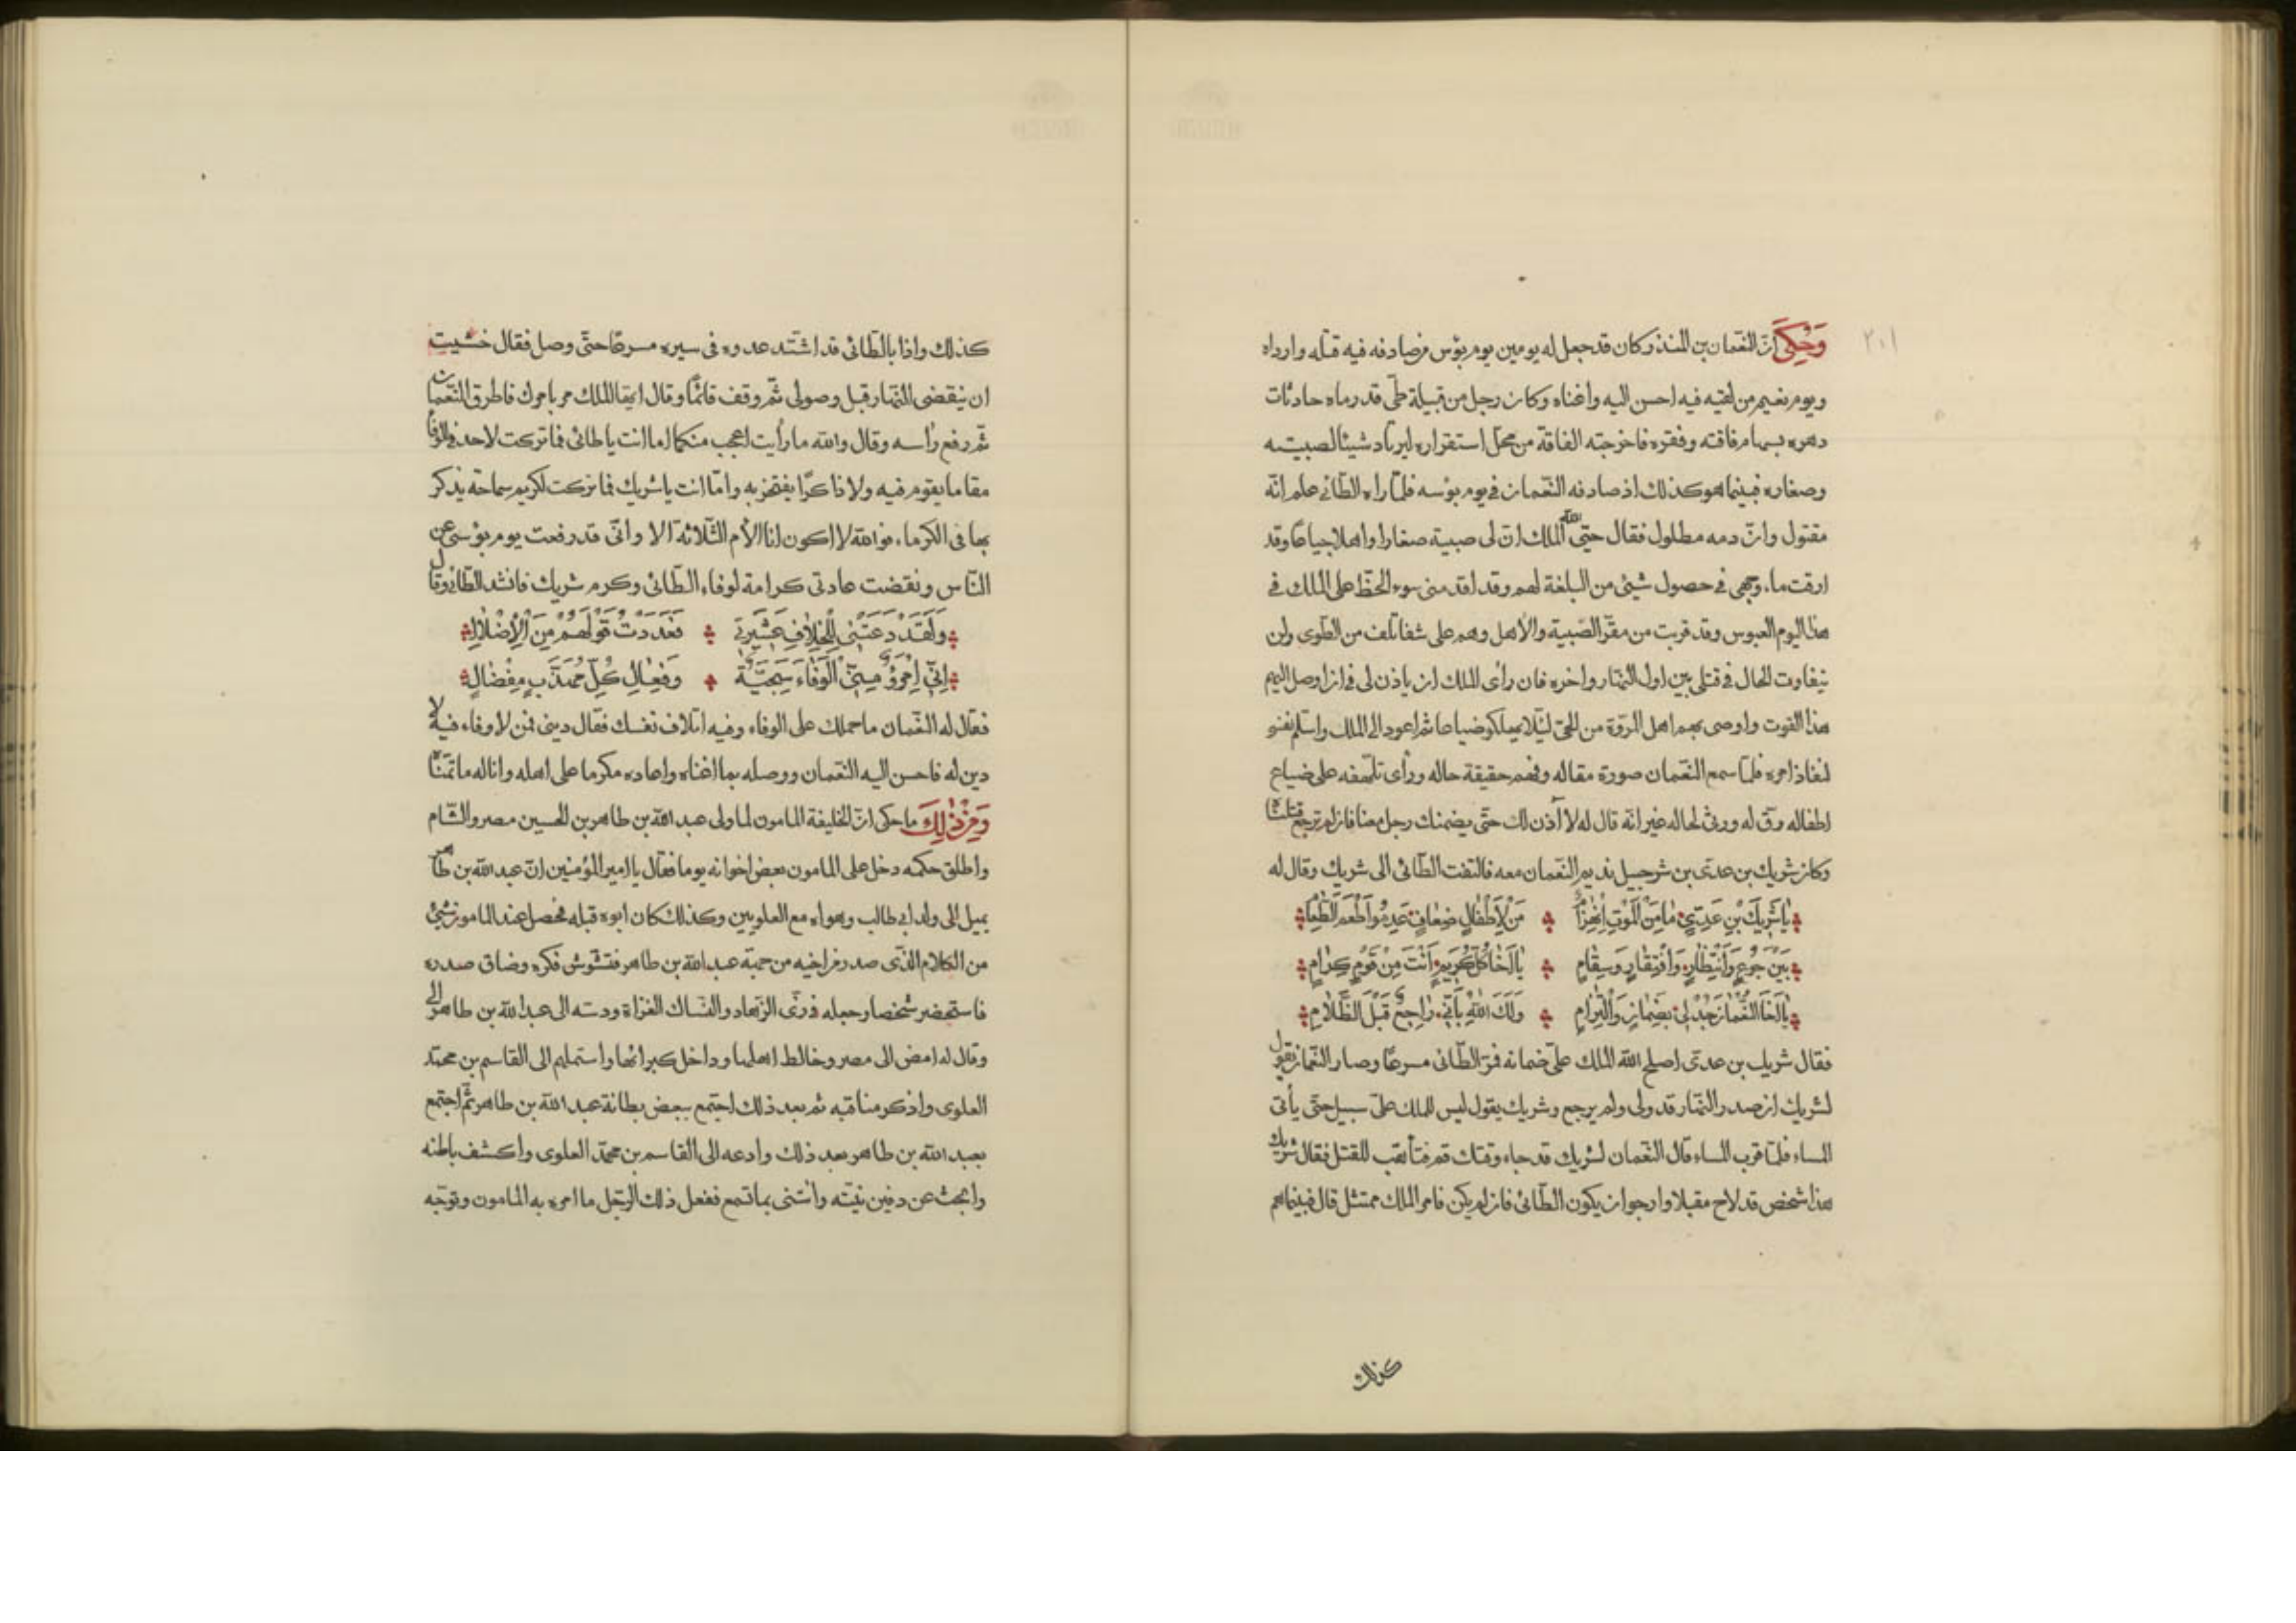 ٢٠١
وَحُكِيَ انّ النّعمان بن المنذر كان قد جعل له يومين يوم بؤس من صادفه فيه قتله وارداه
ويوم نعيم من لقيه فيه احسن اليه واغناه وكان رجل من قبيلة طيّ قد رماه حادثات
دهره بسهام فاقته وفقره فاخرجته الفاقة من محلّ استقراره ليرتاد شيئا لصبيته
وصغاره فبينما هو كذلك اذ صادفه النّعمان في يوم بؤسه فلمّا راه الطّائي علم انّه
مقتول وانّ دمه مطلول فقال حيّى الله الملك انّ لى صبية صغارا واهلا جياعا وقد
ارقت ماء وجهى فى حصول شيئ من البلغة لهم وقد اقدمنى سوء الحظّ على الملك فى
هذا اليوم العبوس وقد قربت من مقرّ الصّبية والأهل وهم على شفا تلف من الطّوى ولن
يتفاوت الحال فى قتلى بين اول النّهار واخره فان رأى الملك ان ياذن لى فى ان اوصل اليهم
هذا القوت واوصى بهم اهل المروّة من الحىّ ليئلا يهلكو ضياعا ثم اعود الى الملك واسلم نفسى
لنفاذ امره فلمّا سمع النّعمان صورة مقاله وفهم حقيقة حاله ورأى تلهّفه على ضياع
اطفاله رقّ له ورثى لحاله غير انّه قال له لا أذن لك حتّى يضمنك رجل معنا فان لم ترجع قتلناه
وكان شريك بن عدىّ بن شرحبيل نديم النّعمان معه فالتفت الطّائى الى شريك وقال له
يٰا شَرِيكَ بْنِ عَدِىّ مٰا مِنَ الْمَوْتِ اِنْهِزٰامْ ۞ مَنْ لِاَطْفٰالٍ ضِعٰافٍ عَدِمُوْا طَعْمَ الطَّعٰامْ
بَيْنَ جُوْعٍ وَاَنْتِظٰارٍ وَاَفْتِقٰارٍ وَسِقٰامٍ ۞ يٰا اَخٰا كُلِّ كَرِيمٍ اَنْتَ مِنْ قَوْمٍ كِرٰامٍ
يٰا اَخَا النُّعْمٰانِ جُدْ لِىْ بِضَمٰانٍ وَاَلْتِزٰامٍ ۞ وَلَكَ اللّٰهُ بِاَنِّى رٰاجِعٌ قَبْلَ الظَّلٰامِ
فقال شريك بن عدىّ اصلح الله الملك علىّ ضمانه فمرّ الطّائى مسرعا وصار النّعمان يقول
لشريك ان صدر النّهار قد ولى ولم يرجع وشريك يقول ليس للملك علىّ سبيل حتّى يأتى
المساء فلمّا قرب المساء قال النّعمان لشريك قد جاء وقتك قم فتأهّب للقتل فقال شريك
هذا شخص قد لاح مقبلا وارجوا ان يكون الطّائى فان لم يكن فامر الملك ممتثل قال فبينما هم
كذلك
كذلك واذا بالطّائى قد اشتد عدوه فى سيره مسرعا حتّى وصل فقال خشيت
ان ينقضى النّهار قبل وصولى ثمّ وقف قائما وقال ايّها الملك مر بامرك فاطرق النّعمان
ثمّ رفع رأسه وقال والله ما رأيت اعجب منكما اما انت يا طائى فما تركت لاحد فى الوفا
مقاما يقوم فيه ولا ذاكرا يفتخر به وامّا انت يا شريك فما تركت لكريم سماحة يذكر
بها فى الكرماء فوالله لا اكون انا الأم الثّلاثة الا وانّى قد رفعت يوم بؤسى عن
النّاس ونقضت عادتى كرامة لوفاء الطّائى وكرم شريك فانشد الطّائى وقال
وَلَقَدْ دَعَتْنِى لِلْخِلٰافِ عَشِيْرَتِى ۞ فَعَدَدْتُ قَوْلَهُمْ مِنَ الْاِضْلٰالِ
اِنِّى اِمْرَؤٌ مِنِّى الْوَفٰاءُ سَجِيَّةٌ ۞ وَفِعٰالِ كُلِّ مُهَذَّبٍ مِفْضٰالٍ
فقال له النّعمان ما حملك على الوفاء وفيه اتلاف نفسك فقال دينى فمن لا وفاء فيه لا
دين له فاحسن اليه النّعمان ووصله بما اغناه واعاده مكرما على اهله واناله ما تمنّاه
وَمِنْ ذٰلِكَ ما حكى انّ الخليفة المامون لما ولى عبد الله بن طاهر بن الحسين مصر والشّام
واطلق حكمه دخل على المامون بعض اخوانه يوما فقال يا امير المؤمنين انّ عبد الله بن طاهر
يميل الى ولد ابى طالب وهواه مع العلويين وكذلك كان ابوه قبله فحصل عند المامون شئ
من الكلام الذّى صدر من اخيه من جهة عبد الله بن طاهر فتشوش فكره وضاق صدره
فاستحضر شخصا وجعله فى زىّ الزّهاد والنّساك الغزاة ودسّه الى عبد الله بن طاهر الى
وقال له امض الى مصر وخالط اهلها وداخل كبرائها واستملهم الى القاسم بن محمّد
العلوى واذكر مناقبه ثم بعد ذلك اجتمع ببعض بطانة عبد الله بن طاهر ثمّ اجتمع
بعبد الله بن طاهر بعد ذلك وادعه الى القاسم بن محمّد العلوى واكشف باطنه
وابحث عن دفين نيّته وائتنى بما تسمع ففعل ذلك الرّجل ما امره به المامون وتوجّه